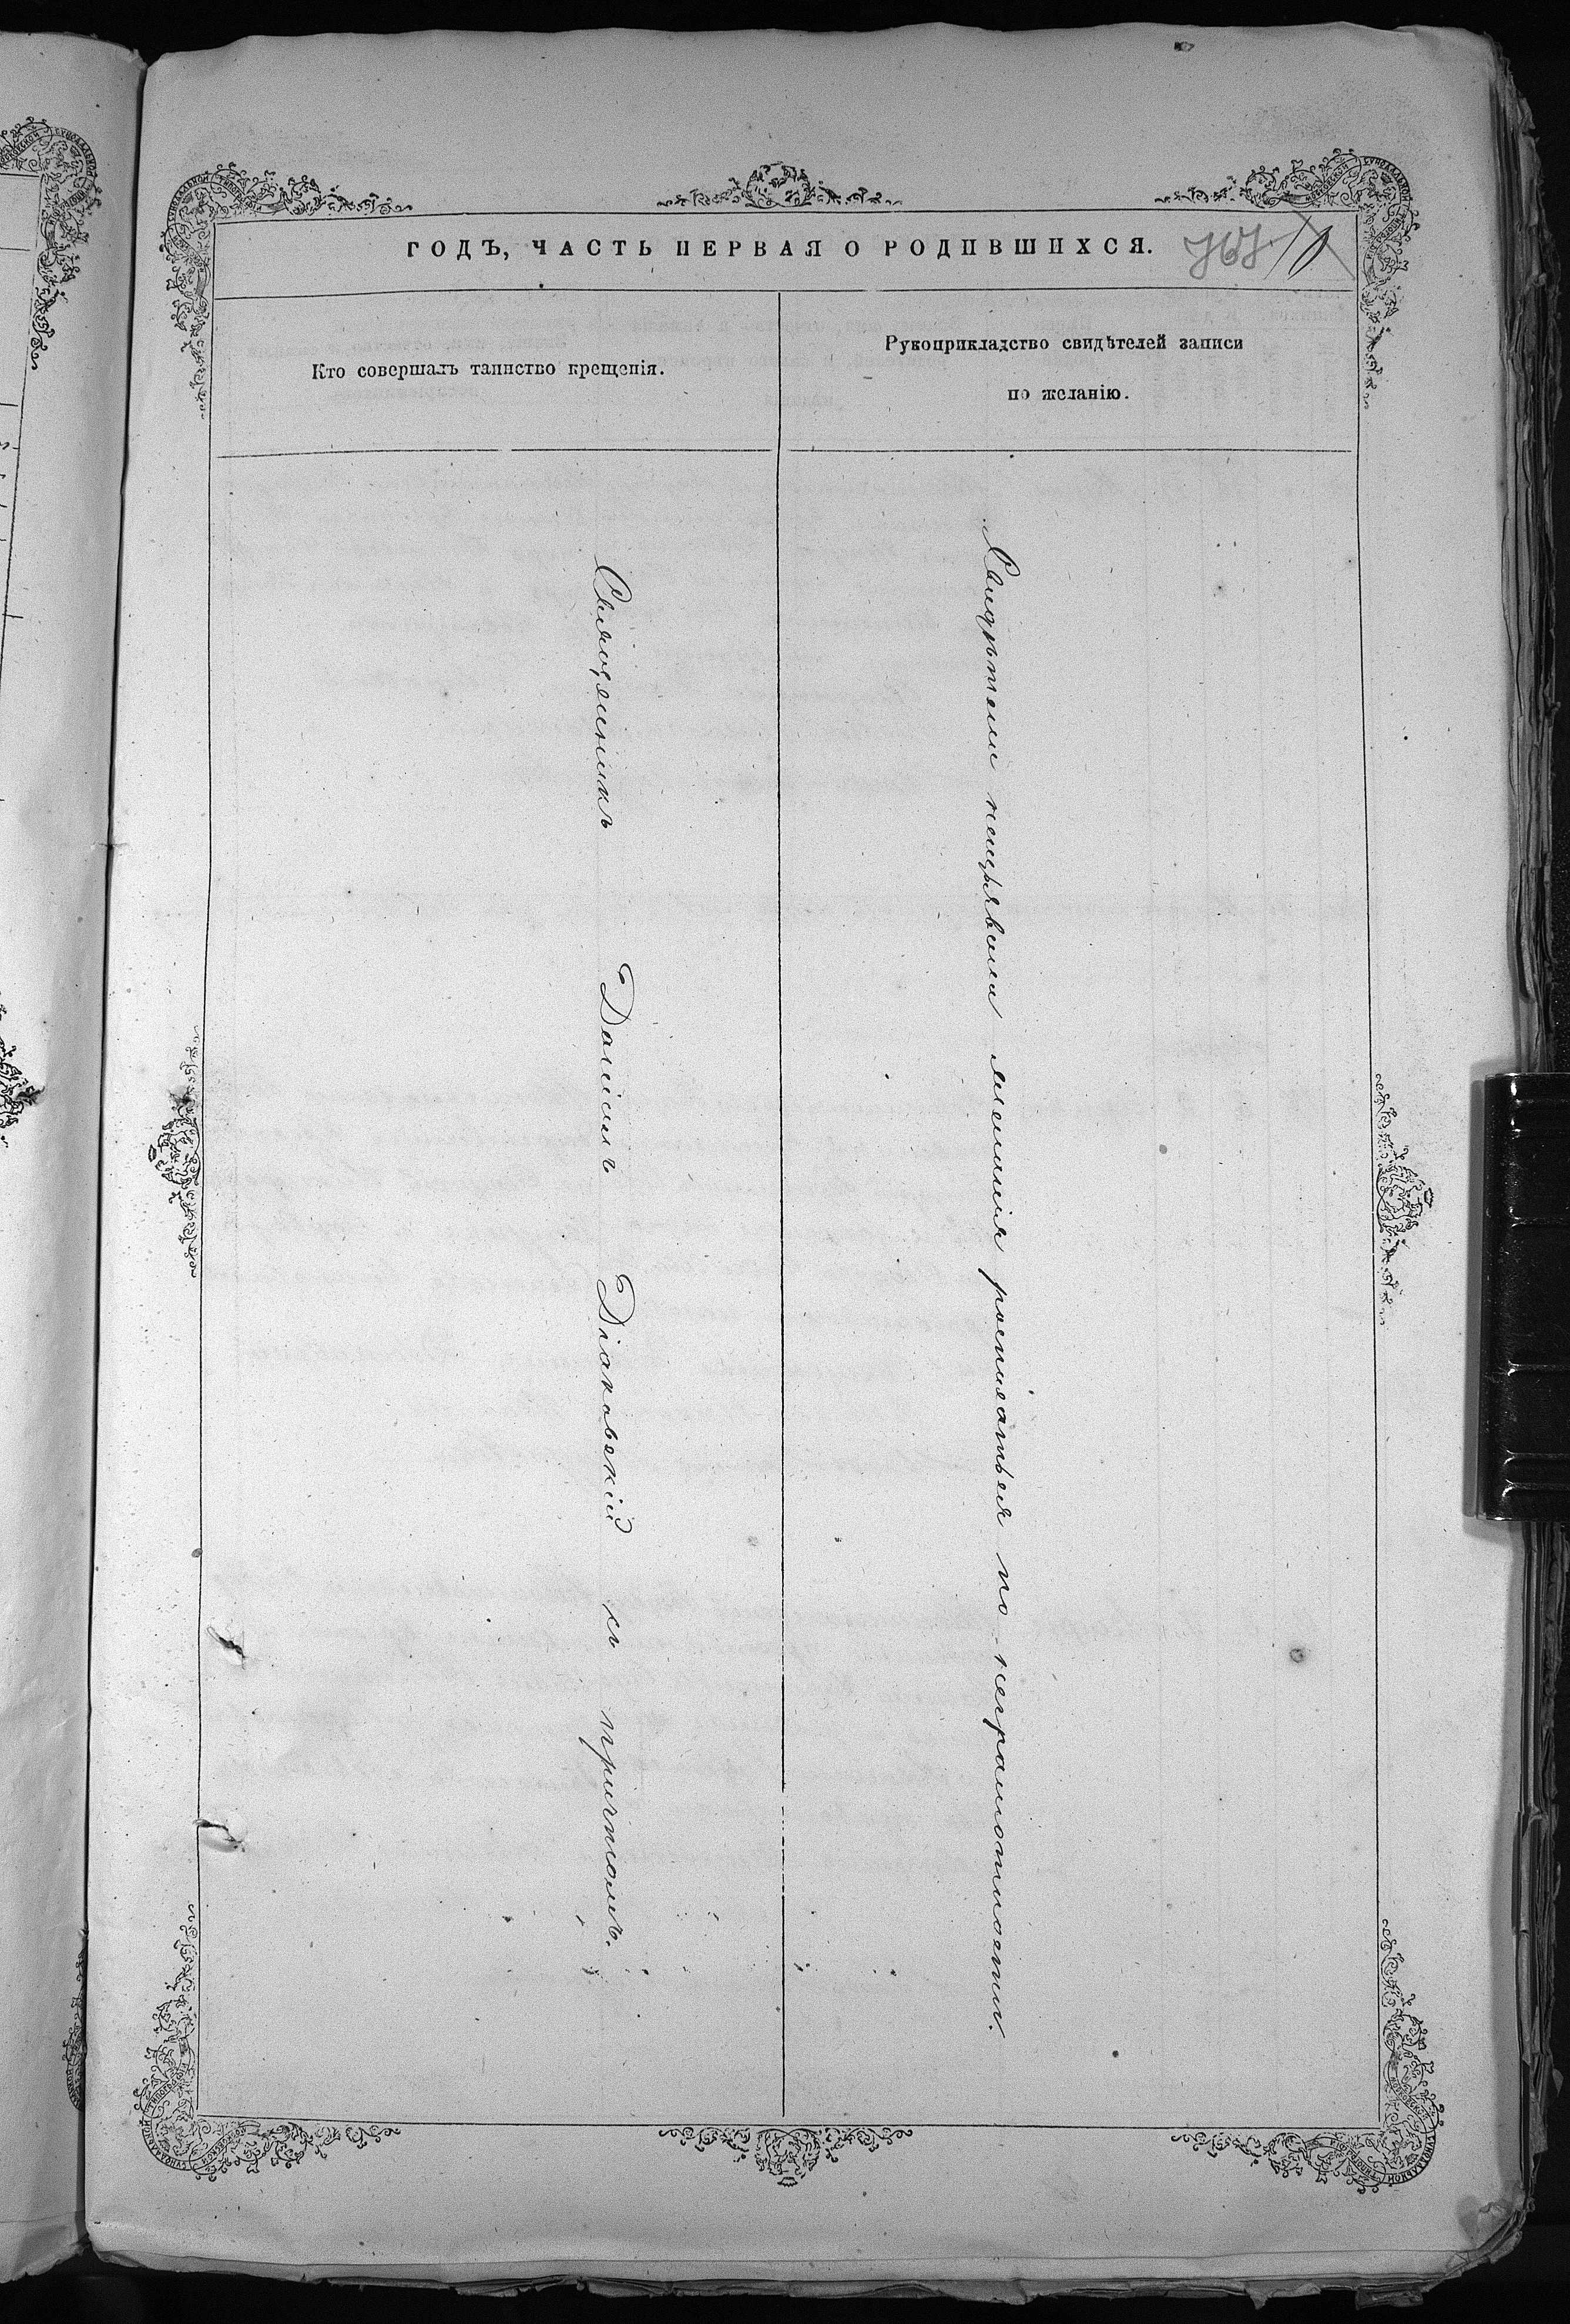 ГОДЪ, ЧАСТЬ ПЕРВАЯ О РОДИВШИХСЯ.
Кто совершалъ таинство крещенія.
Рукоприкладство свидѣтелей записи
по желанію.
Священникъ Даніилъ Діаковскій съ причтомъ.
Свидѣтели неизъявили желанія росписаться по неграмотности.